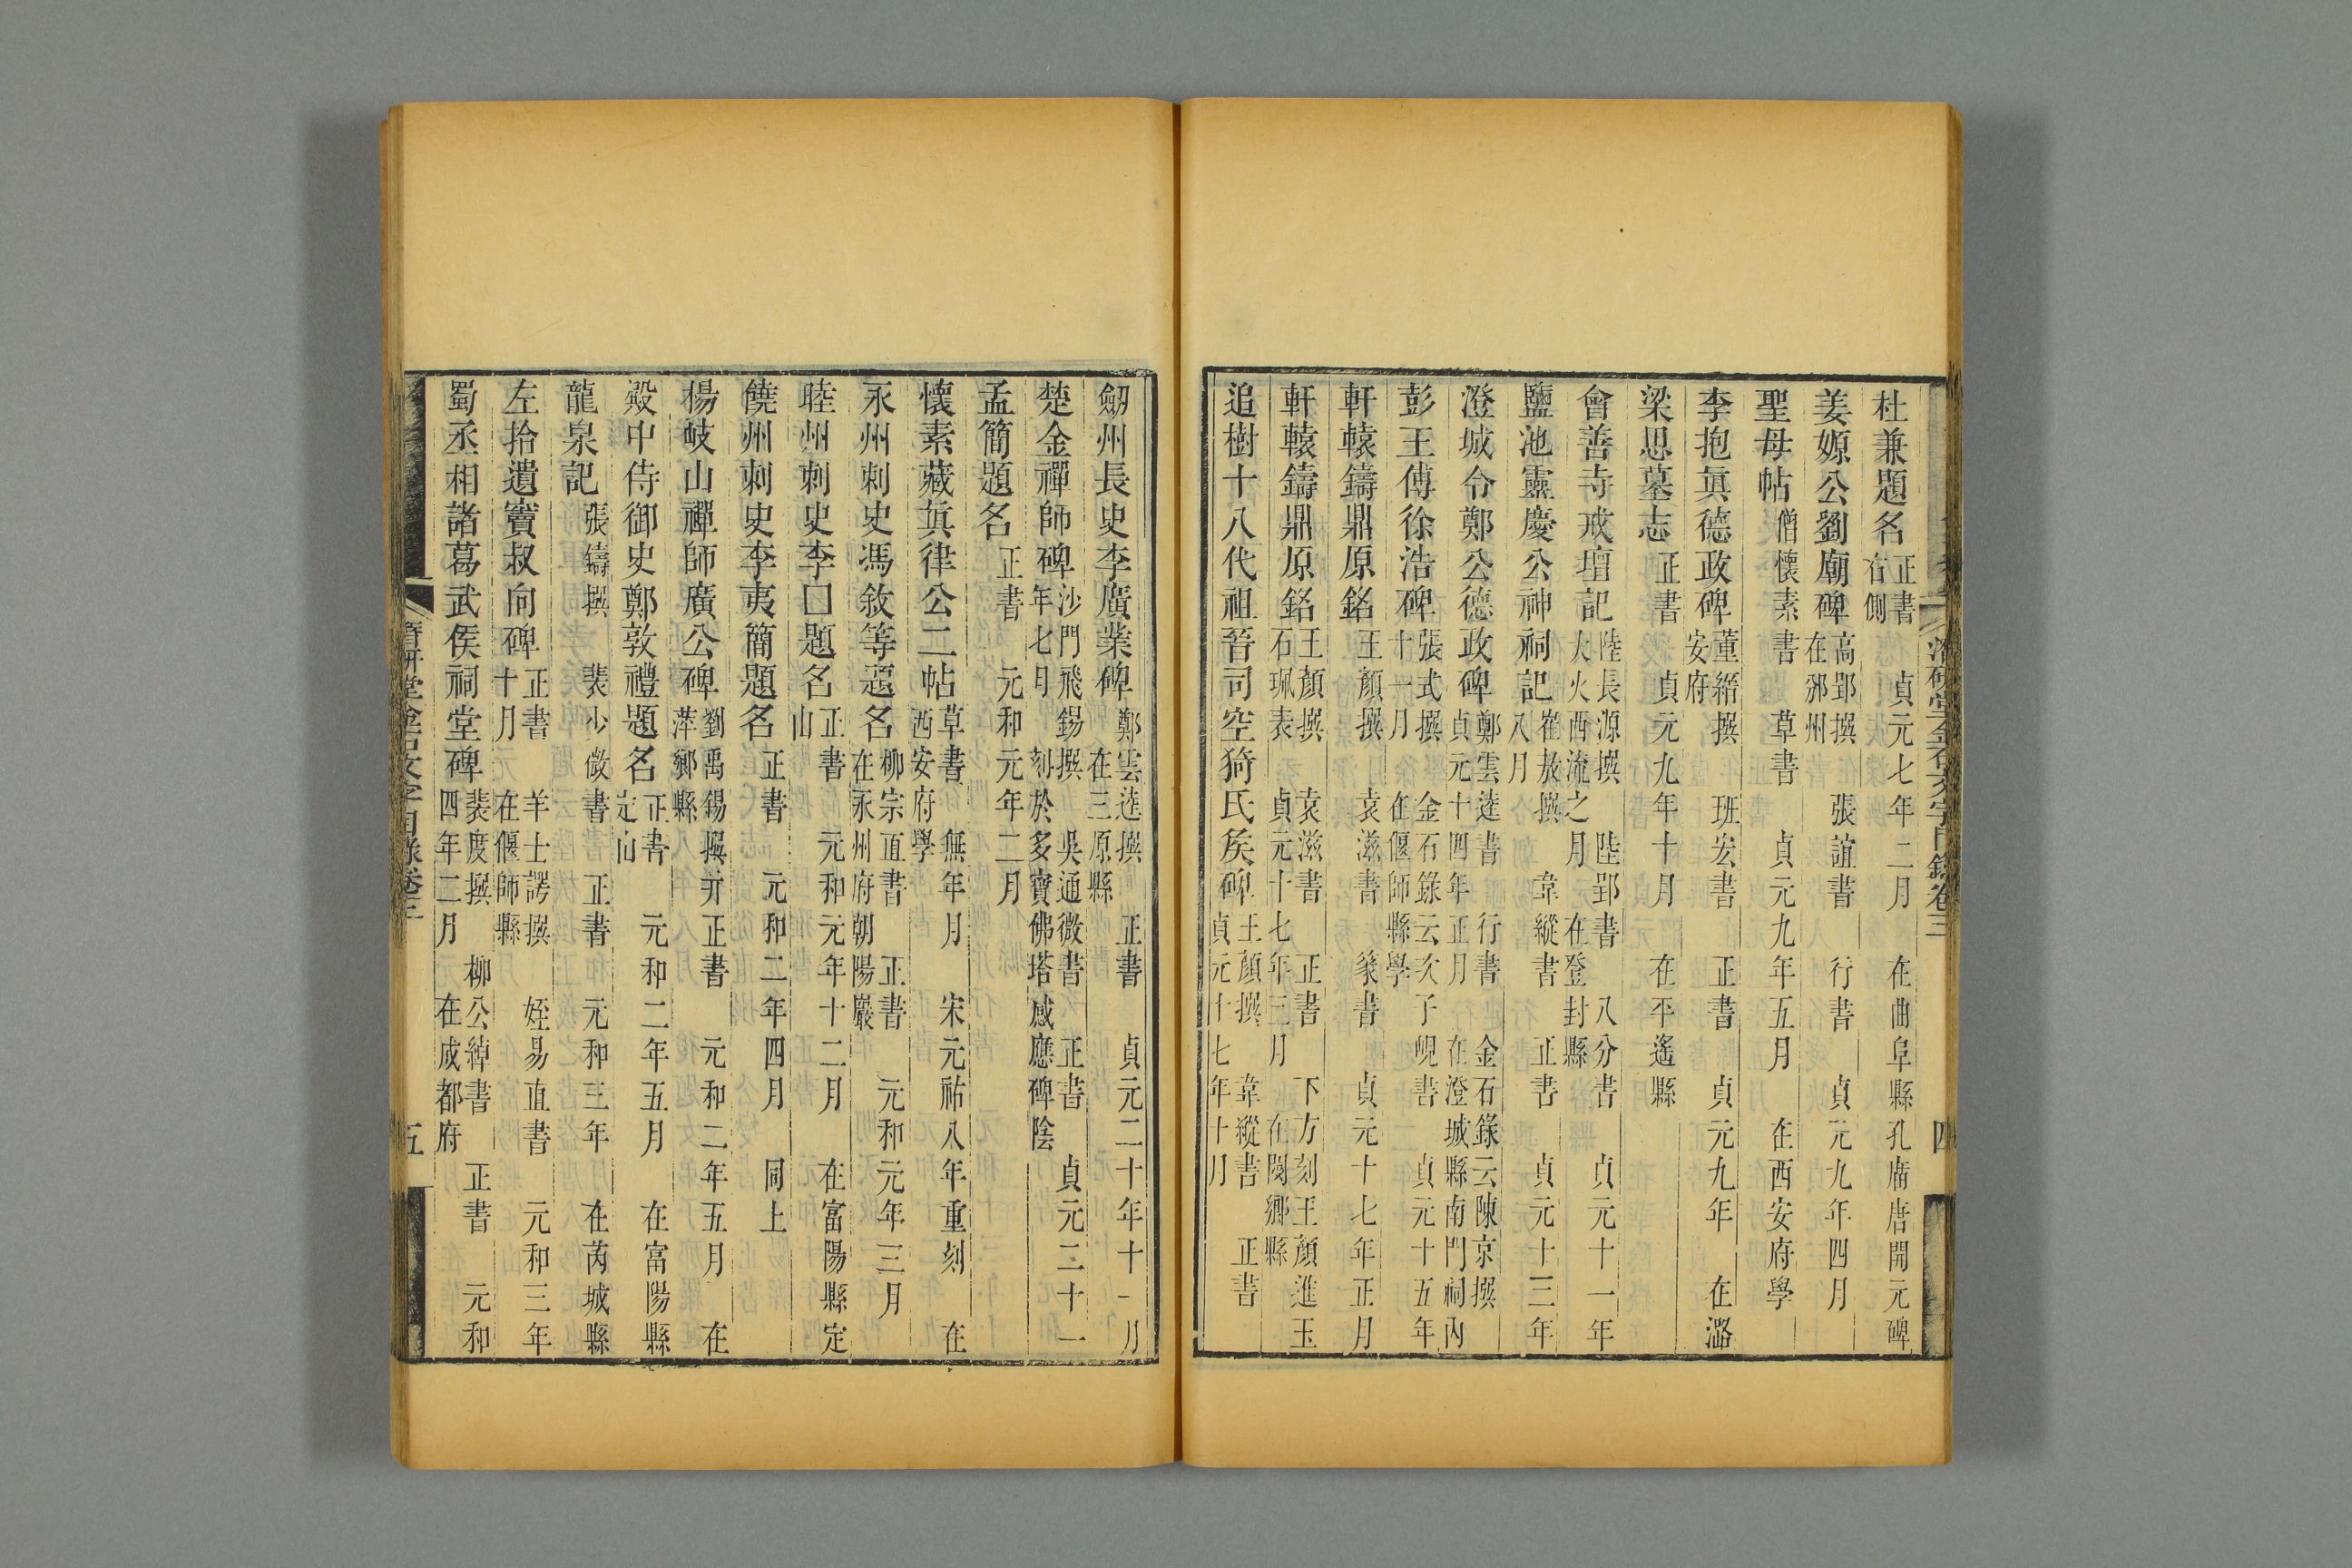 杜兼題名 正書 貞元七年二月 在曲阜縣孔廟唐開元碑右側
姜嫄公劉廟碑 高郢撰 張誼書 行書 貞元九年四月 在邠州
聖母帖 僧懷素書 草書 貞元九年五月 在西安府學
李抱眞德政碑 董縉撰 班宏書 正書 貞元九年 在潞安府
梁思墓志 正書 貞元九年十月 在平遙縣
會善寺戒壇記 陸長源撰 陸郢書 八分書 貞元十一年大火西流之月 在登封縣
鹽池靈慶公神祠記 崔敖撰 韋縱書 正書 貞元十三年八月
澄城令鄭公德政碑 鄭雲逵書 行書 金石錄云陳京撰 貞元十四年正月 在澄城縣南門祠內
彭王傅徐浩碑 張式撰 金石錄云次子峴書 貞元十五年十一月 在偃師縣學
軒轅鑄鼎原銘 王顏撰 袁滋書 篆書 貞元十七年正月
軒轅鑄鼎原銘 王顏撰 袁滋書 正書 下方刻王顏進玉石珮表 貞元十七年三月 在閺鄉縣
追樹十八代祖晉司空猗氏矦碑 王顏撰 韋縱書 正書 貞元十七年十月
潛硏堂金石文字目錄卷三 四
劒州長史李廣業碑 鄭雲逵撰 正書 貞元二十年十一月 在三原縣
楚金禪師碑 沙門飛錫撰 吳通微書 正書 貞元二十一年七月 刻於多寶佛塔感應碑陰
孟簡題名 正書 元和元年二月
懷素藏眞律公二帖 草書 無年月 宋元祐八年重刻 在西安府學
永州刺史馮敘等題名 柳宗直書 正書 元和元年三月 在永州府朝陽巖
睦州刺史李囗題名 正書 元和元年十二月 在富陽縣定山
饒州刺史李夷簡題名 正書 元和二年四月 同上
楊岐山禪師廣公碑 劉禹錫撰并正書 元和二年五月 在萍鄉縣
殿中侍御史鄭敦禮題名 正書 元和二年五月 在富陽縣定山
龍泉記 張鑄撰 裴少微書 正書 元和三年 在芮城縣
左拾遺竇叔向碑 正書 羊士諤撰 姪易直書 元和三年十月 在偃師縣
蜀丞相諸葛武侯祠堂碑 裴度撰 柳公綽書 正書 元和四年二月 在成都府
潛硏堂金石文字目錄卷三 五